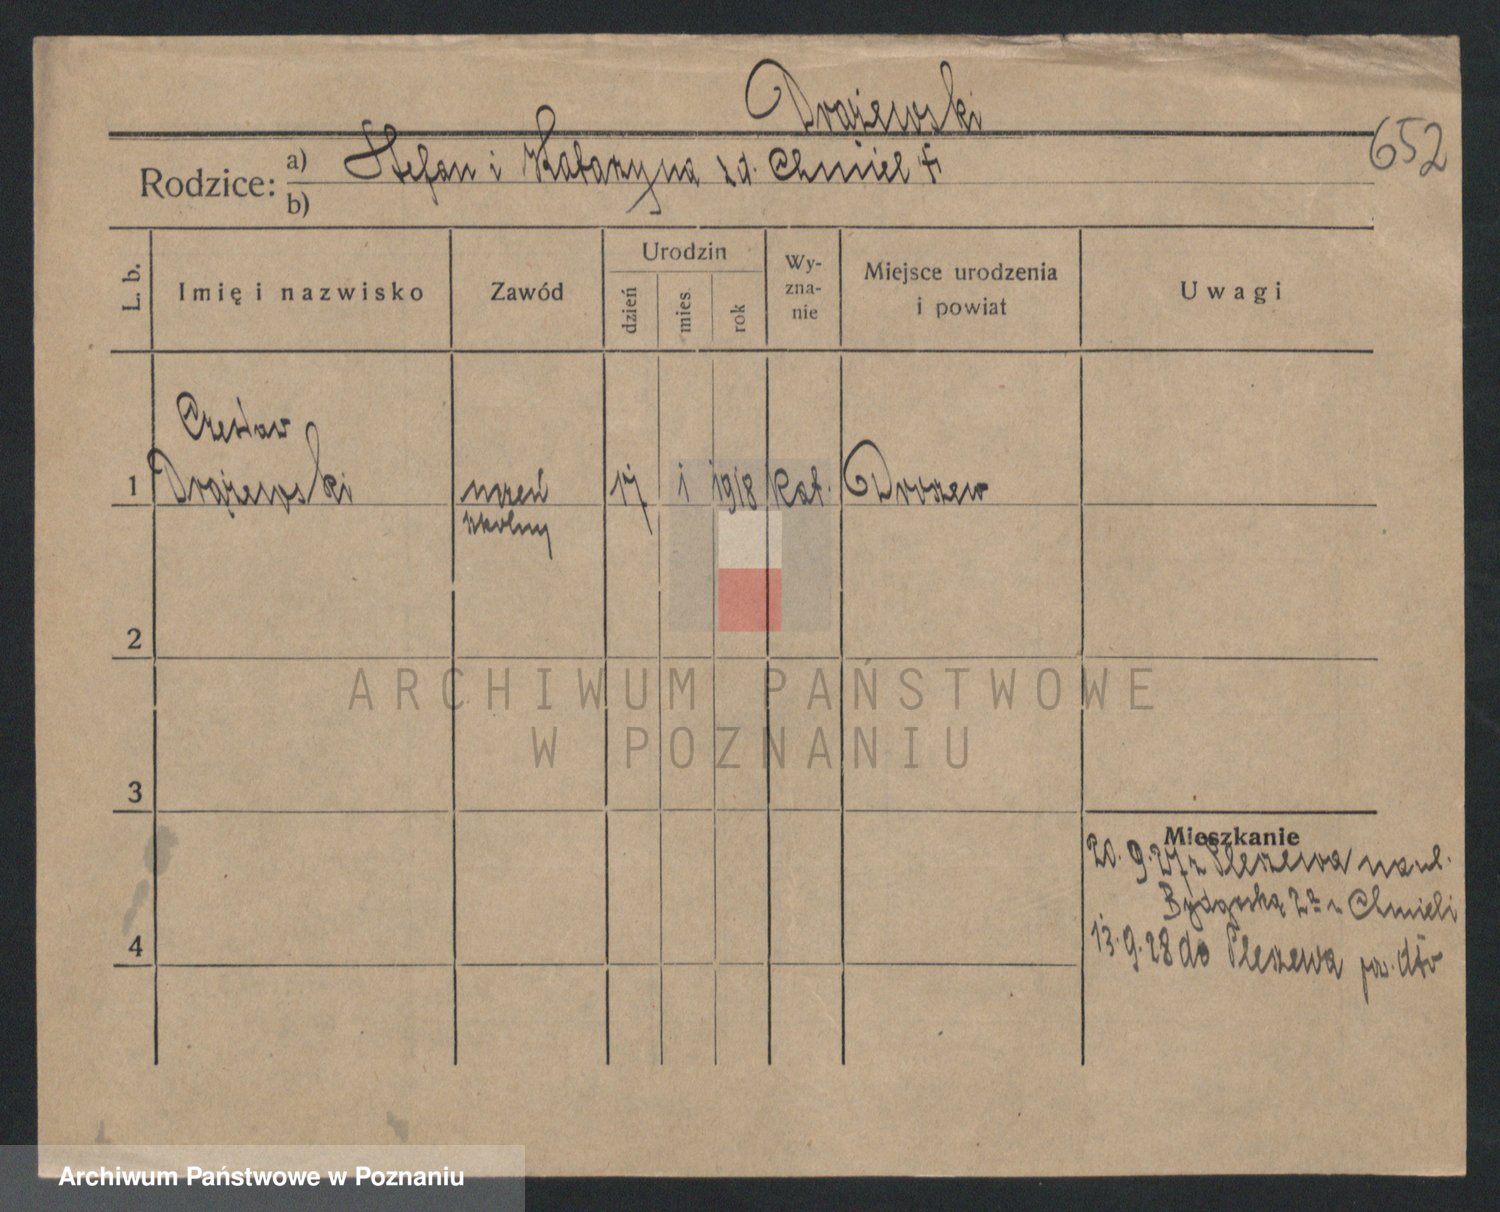 Drążewski
652
Rodzice: a) Stefan i Katarzyna zd. Chmiel
b)
L. b. Imię i nazwisko Zawód Urodzin dzień mies. rok Wy-zna-nie Miejsce urodzenia i powiat Uwagi
Czesław
1 Drążewski uczeń 17 i 1918 kat. Droszew
szkolny
2
ARCHIWUM PAŃSTWOWE
W POZNANIU
3
Mieszkanie
20. 9. 27 z Pleszewa na ul.
Bydgoską Chmieli
4 13. 9. 28 do Pleszewa pow.
Archiwum Państwowe w Poznaniu